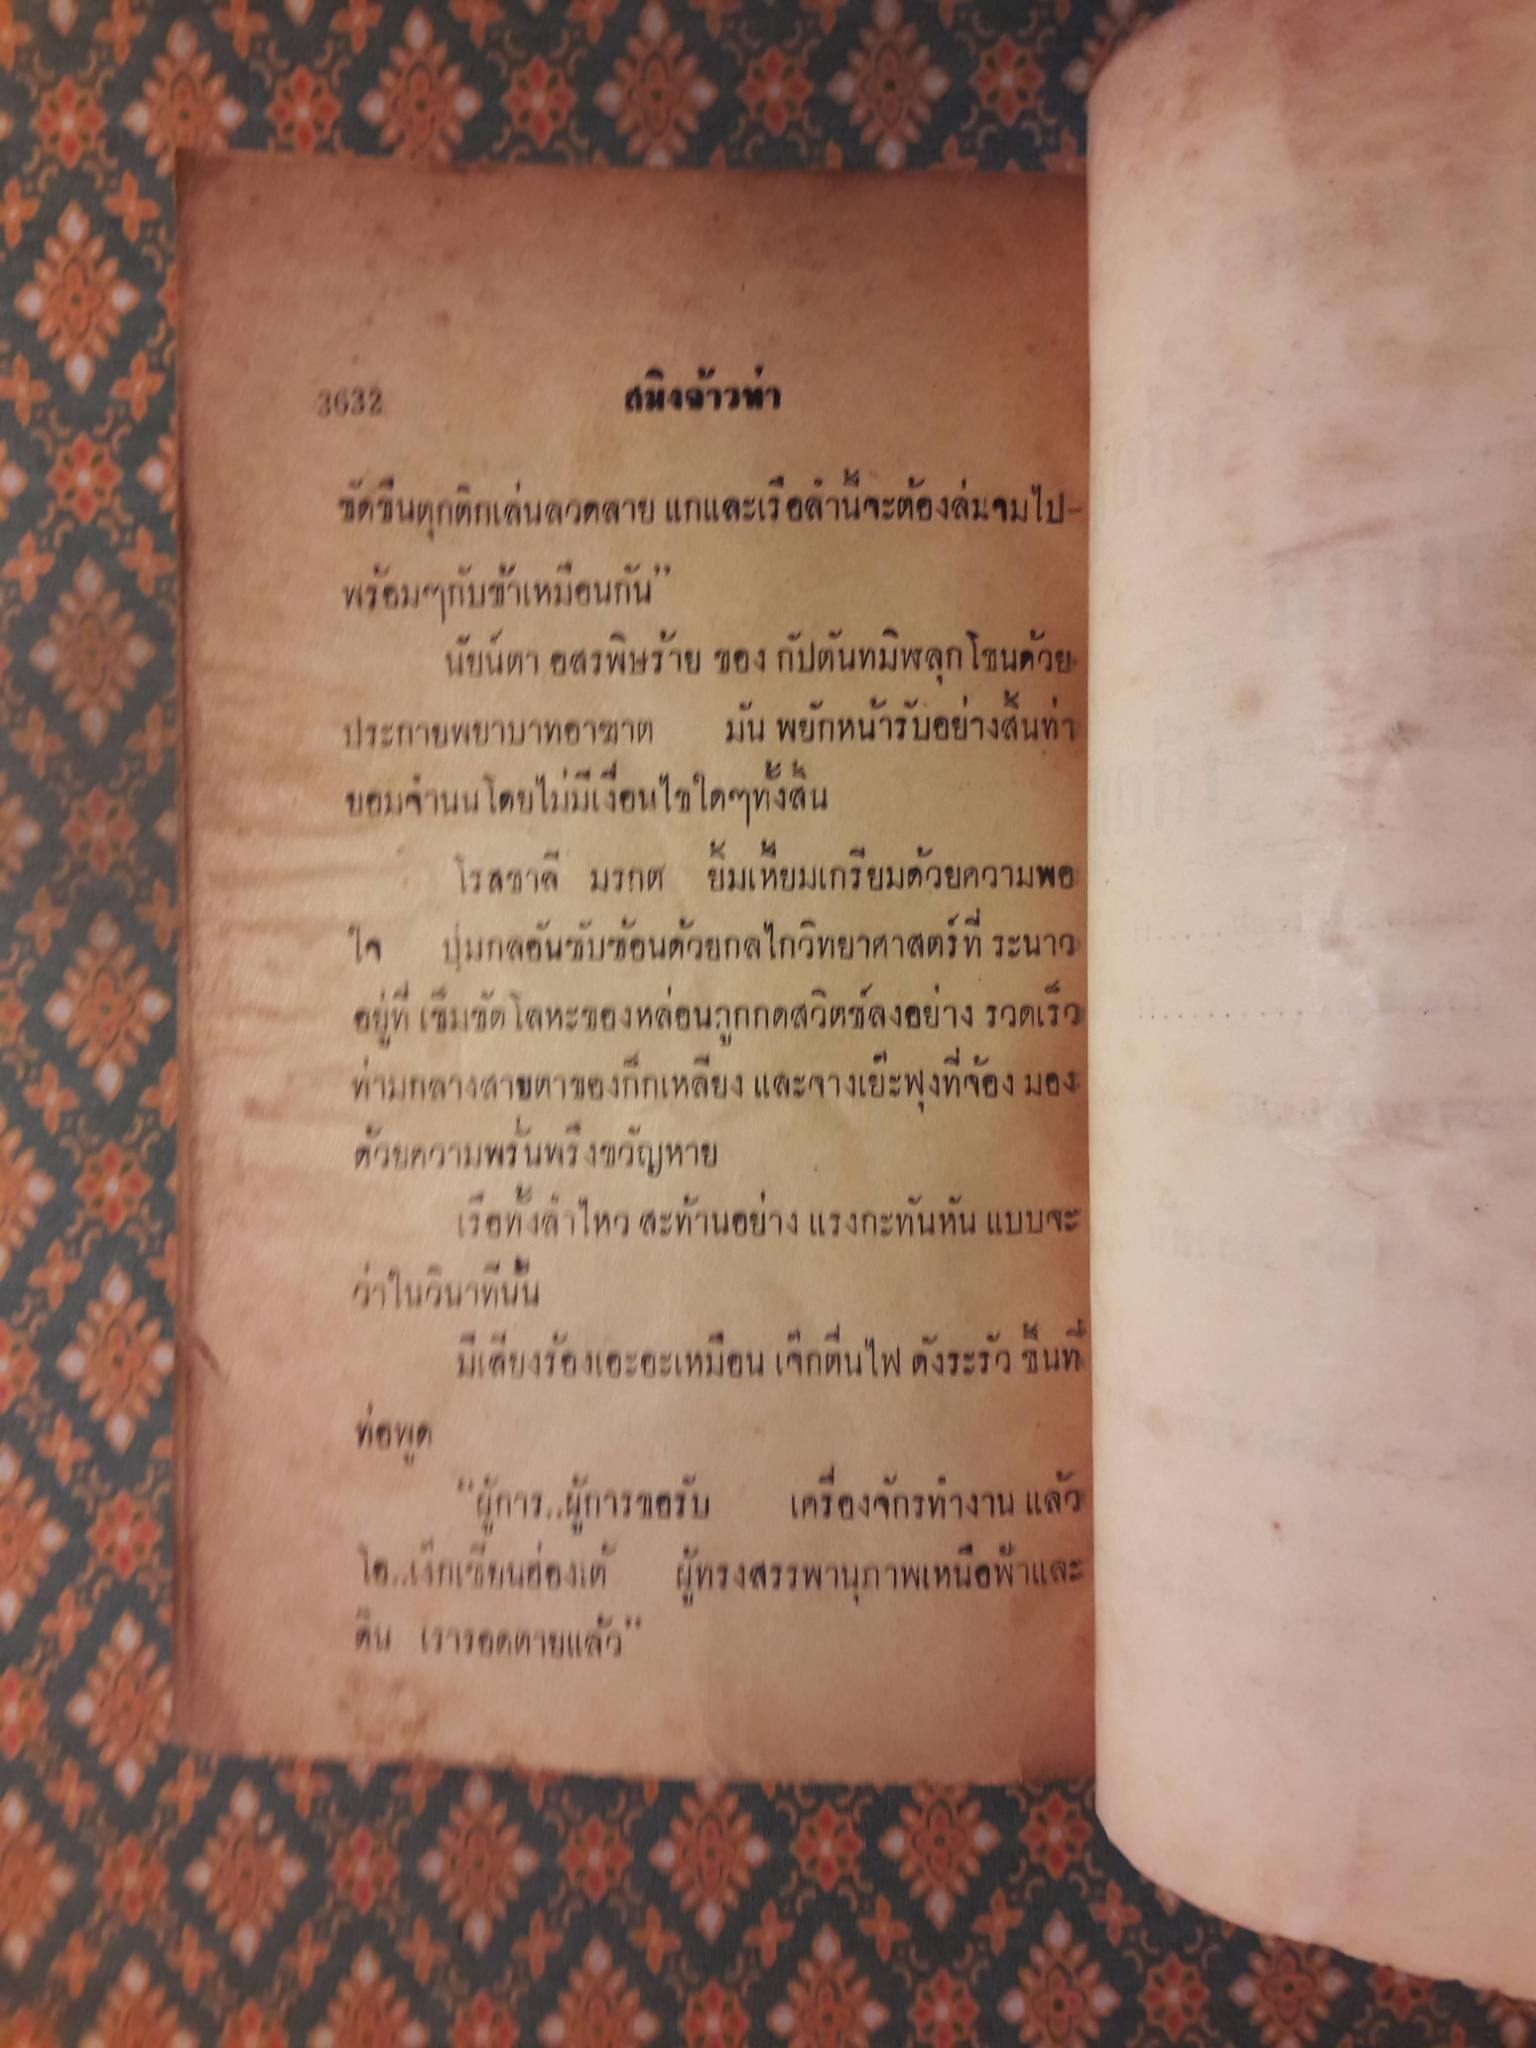 3632 สมิงจ้าวท่า
ขัดขืนตุกติกเล่นลวดลาย แกและเรือลำนี้จะต้องล่มจมไป-
พร้อมๆกับข้าเหมือนกัน”
นัยน์ตา อสรพิษร้าย ของ กัปตันทมิฬลุกโชนด้วย
ประกายพยาบาทอาฆาต มัน พยักหน้ารับอย่างสิ้นท่า
ยอมจำนนโดยไม่มีเงื่อนไขใดๆทั้งสิ้น
โรสซาลี มรกต ยิ้มเหี้ยมเกรียมด้วยความพอ
ใจ ปุ่มกลอันซับซ้อนด้วยกลไกวิทยาศาสตร์ที่ ระนาว
อยู่ที่ เข็มขัดโลหะของหล่อนถูกกดสวิตช์ลงอย่าง รวดเร็ว
ท่ามกลางสายตาของก๊กเหลียง และจางเย๊ะฟุงที่จ้อง มอง
ด้วยความพรั่นพรึงขวัญหาย
เรือทั้งลำไหว สะท้านอย่าง แรงกะทันหัน แบบจะ
ว่าในวินาทีนั้น
มีเสียงร้องเอะอะเหมือน เจ๊กตื่นไฟ ดังระรัว ขึ้นที่
ท่อพูด
“ผู้การ..ผู้การขอรับ เครื่องจักรทำงาน แล้ว
โอ..เง็กเซียนฮ่องเต้ ผู้ทรงสรรพานุภาพเหนือฟ้าและ
ดิน เรารอดตายแล้ว”